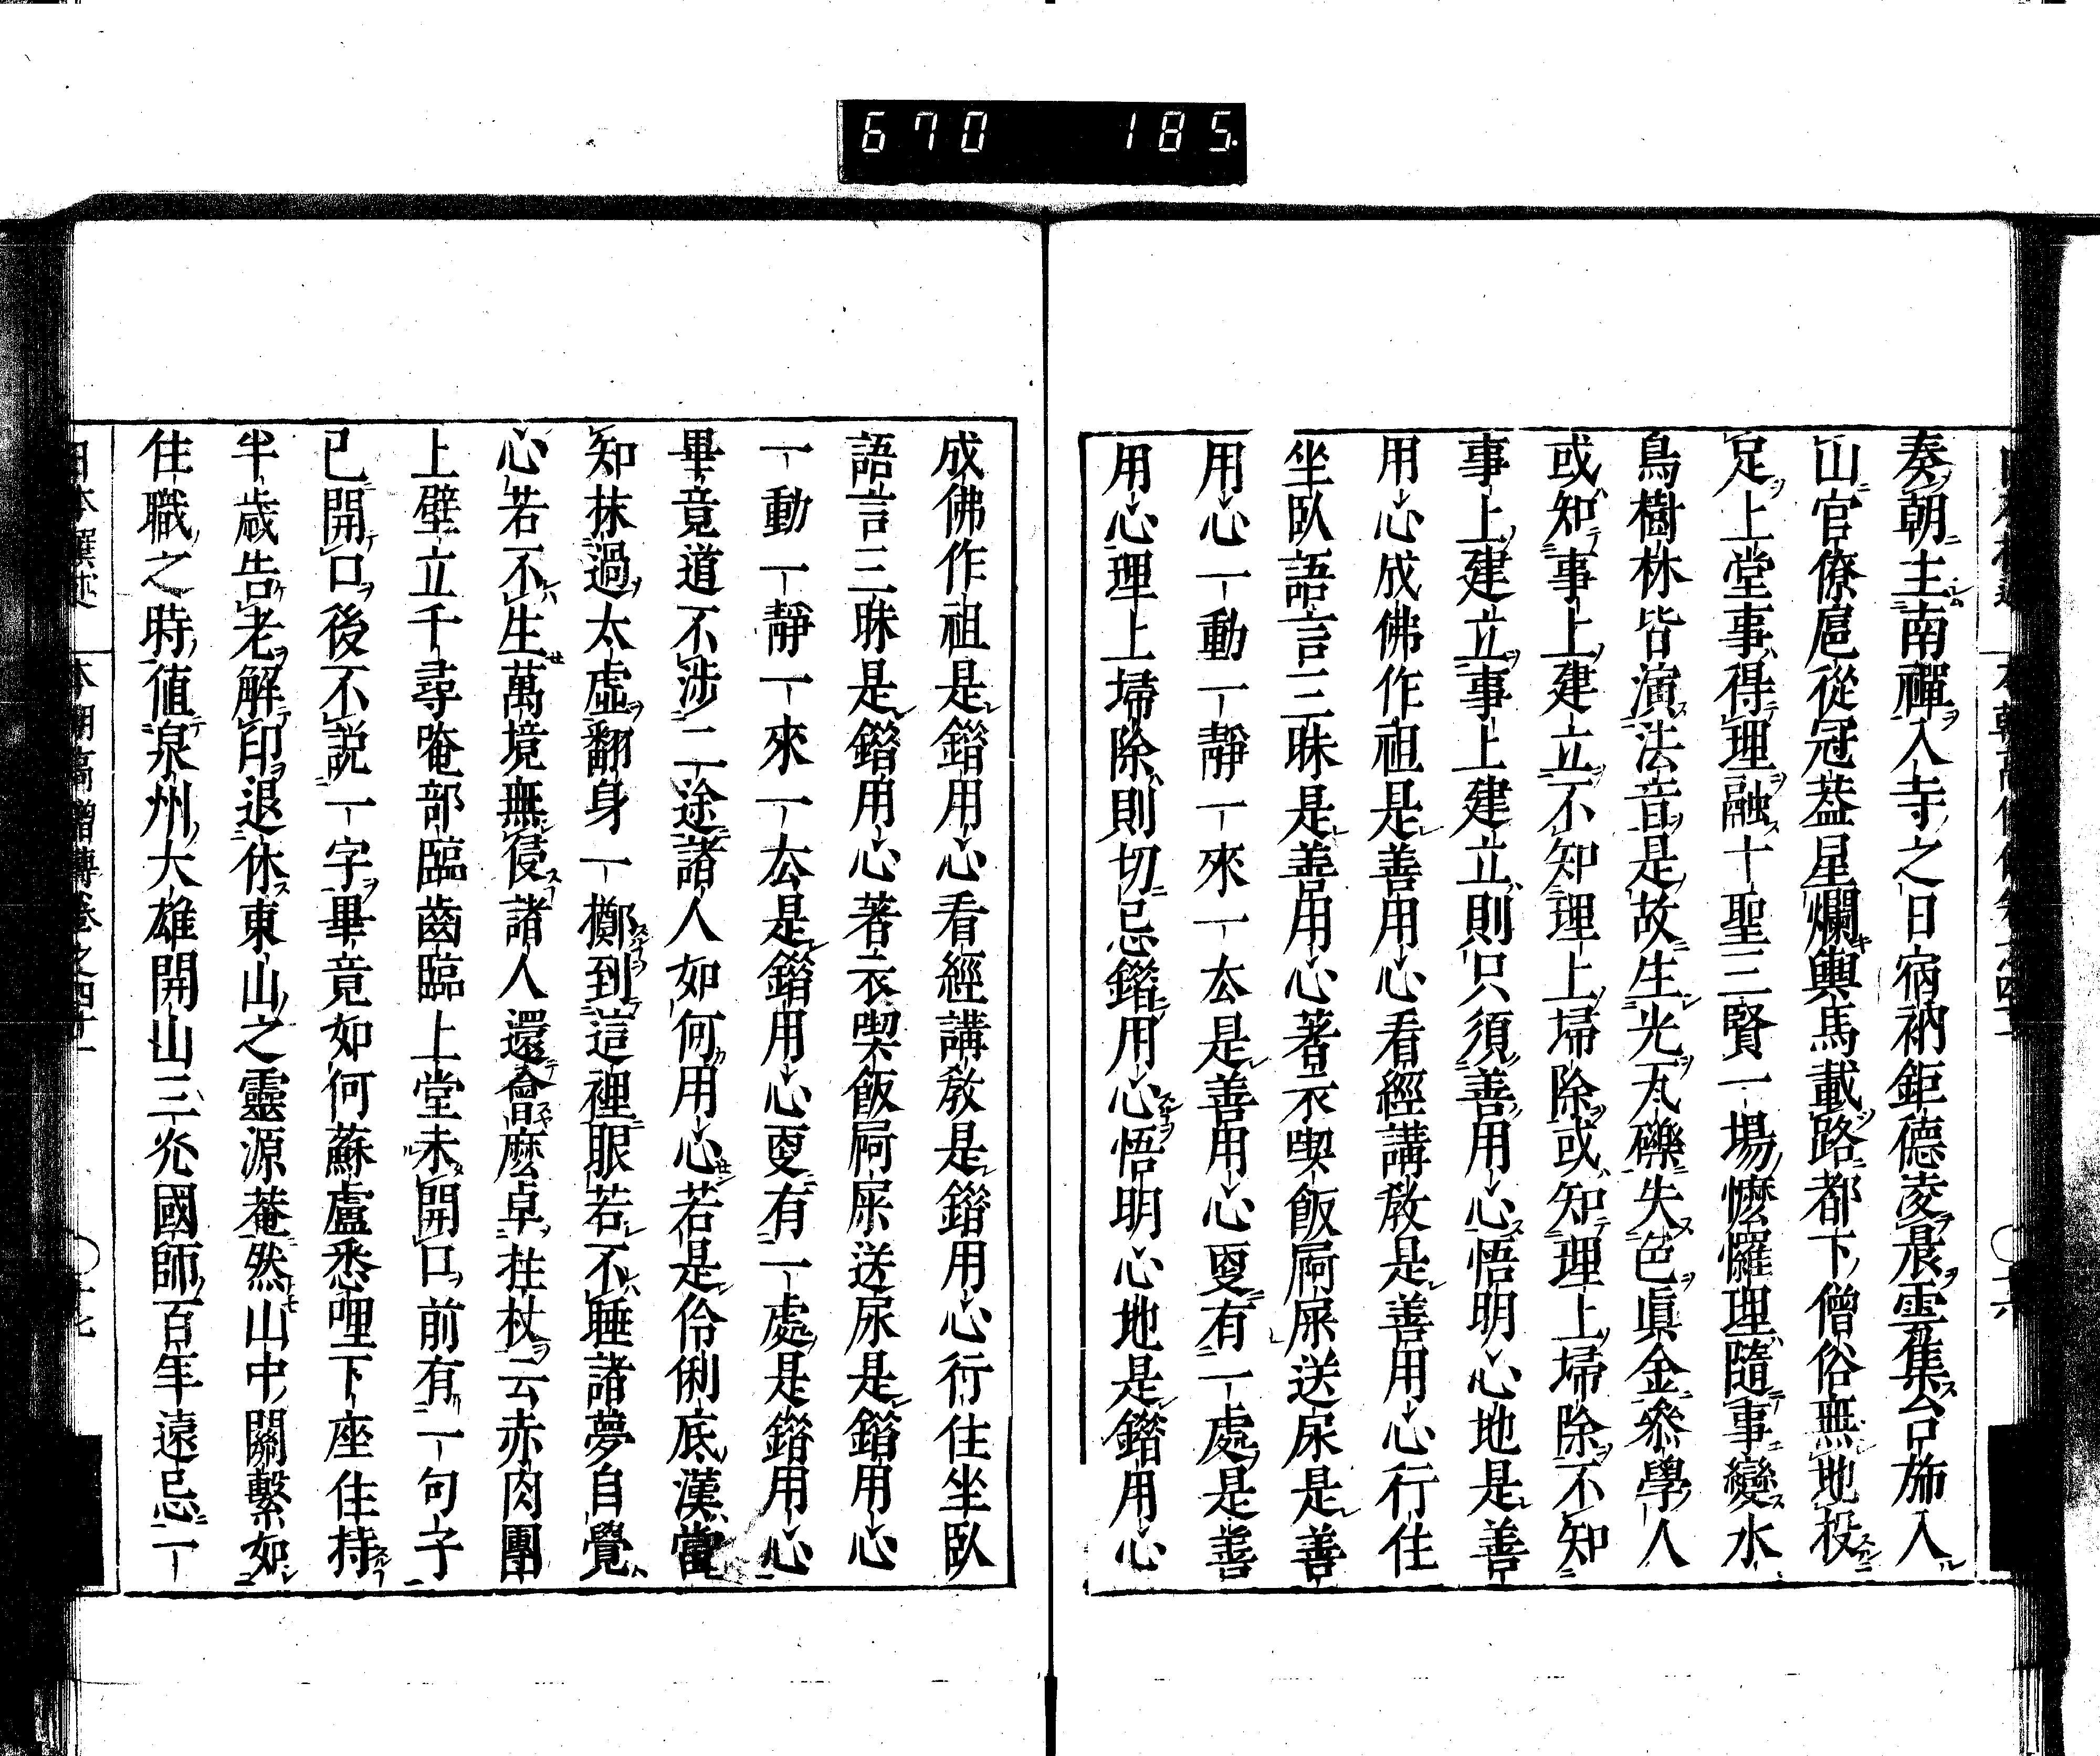 670 185.
奏朝主南禪入寺之日宿衲鉅德凌晨雲集台斾入
山官僚扈從冠蓋星爛輿馬載路都下僧俗無地投
足上堂事得理融十聖三賢一場懡㦬理隨事變水
鳥樹林皆演法音是故生光瓦礫失色眞金參學人
或知事上建立不知理上埽除或知理上埽除不知
事上建立事上建立則只須善用心悟明心地是善
用心成佛作祖是善用心看經講敎是善用心行住
坐臥語言三昧是善用心著衣喫飯屙屎送尿是善
用心一動一靜一來一去是善用心更有一處是善
用心理上埽除則切忌錯用心悟明心地是錯用心
成佛作祖是錯用心看經講敎是錯用心行住坐臥
語言三昧是錯用心著衣喫飯屙屎送尿是錯用心
一動一靜一來一去是錯用心更有一處是錯用心
畢竟道不涉二途諸人如何用心若是伶俐底漢當
知抹過太虛翻身一擲到這裡眼若不睡諸夢自覺
心若不生萬境無侵諸人還會麼卓拄杖云赤肉團
上壁立千尋唵部臨齒臨上堂未開口前有一句子
已開口後不說一字畢竟如何蘇盧悉哩下座住持
半歲告老解印退休東山之靈源菴然山中關繫如
住職之時値泉州大雄開山三光國師百年遠忌一
日本撰述 本朝高僧傳卷之四十一